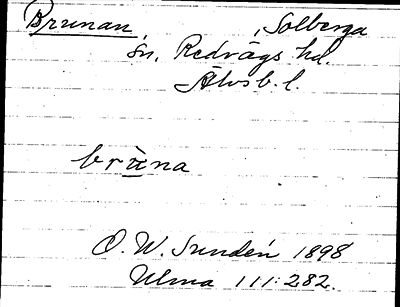 Brunan, Solberga
sn, Redvägs hd.
Älvsb. l.
brùna
O. W. Sundén 1898
Ulma 111:282.